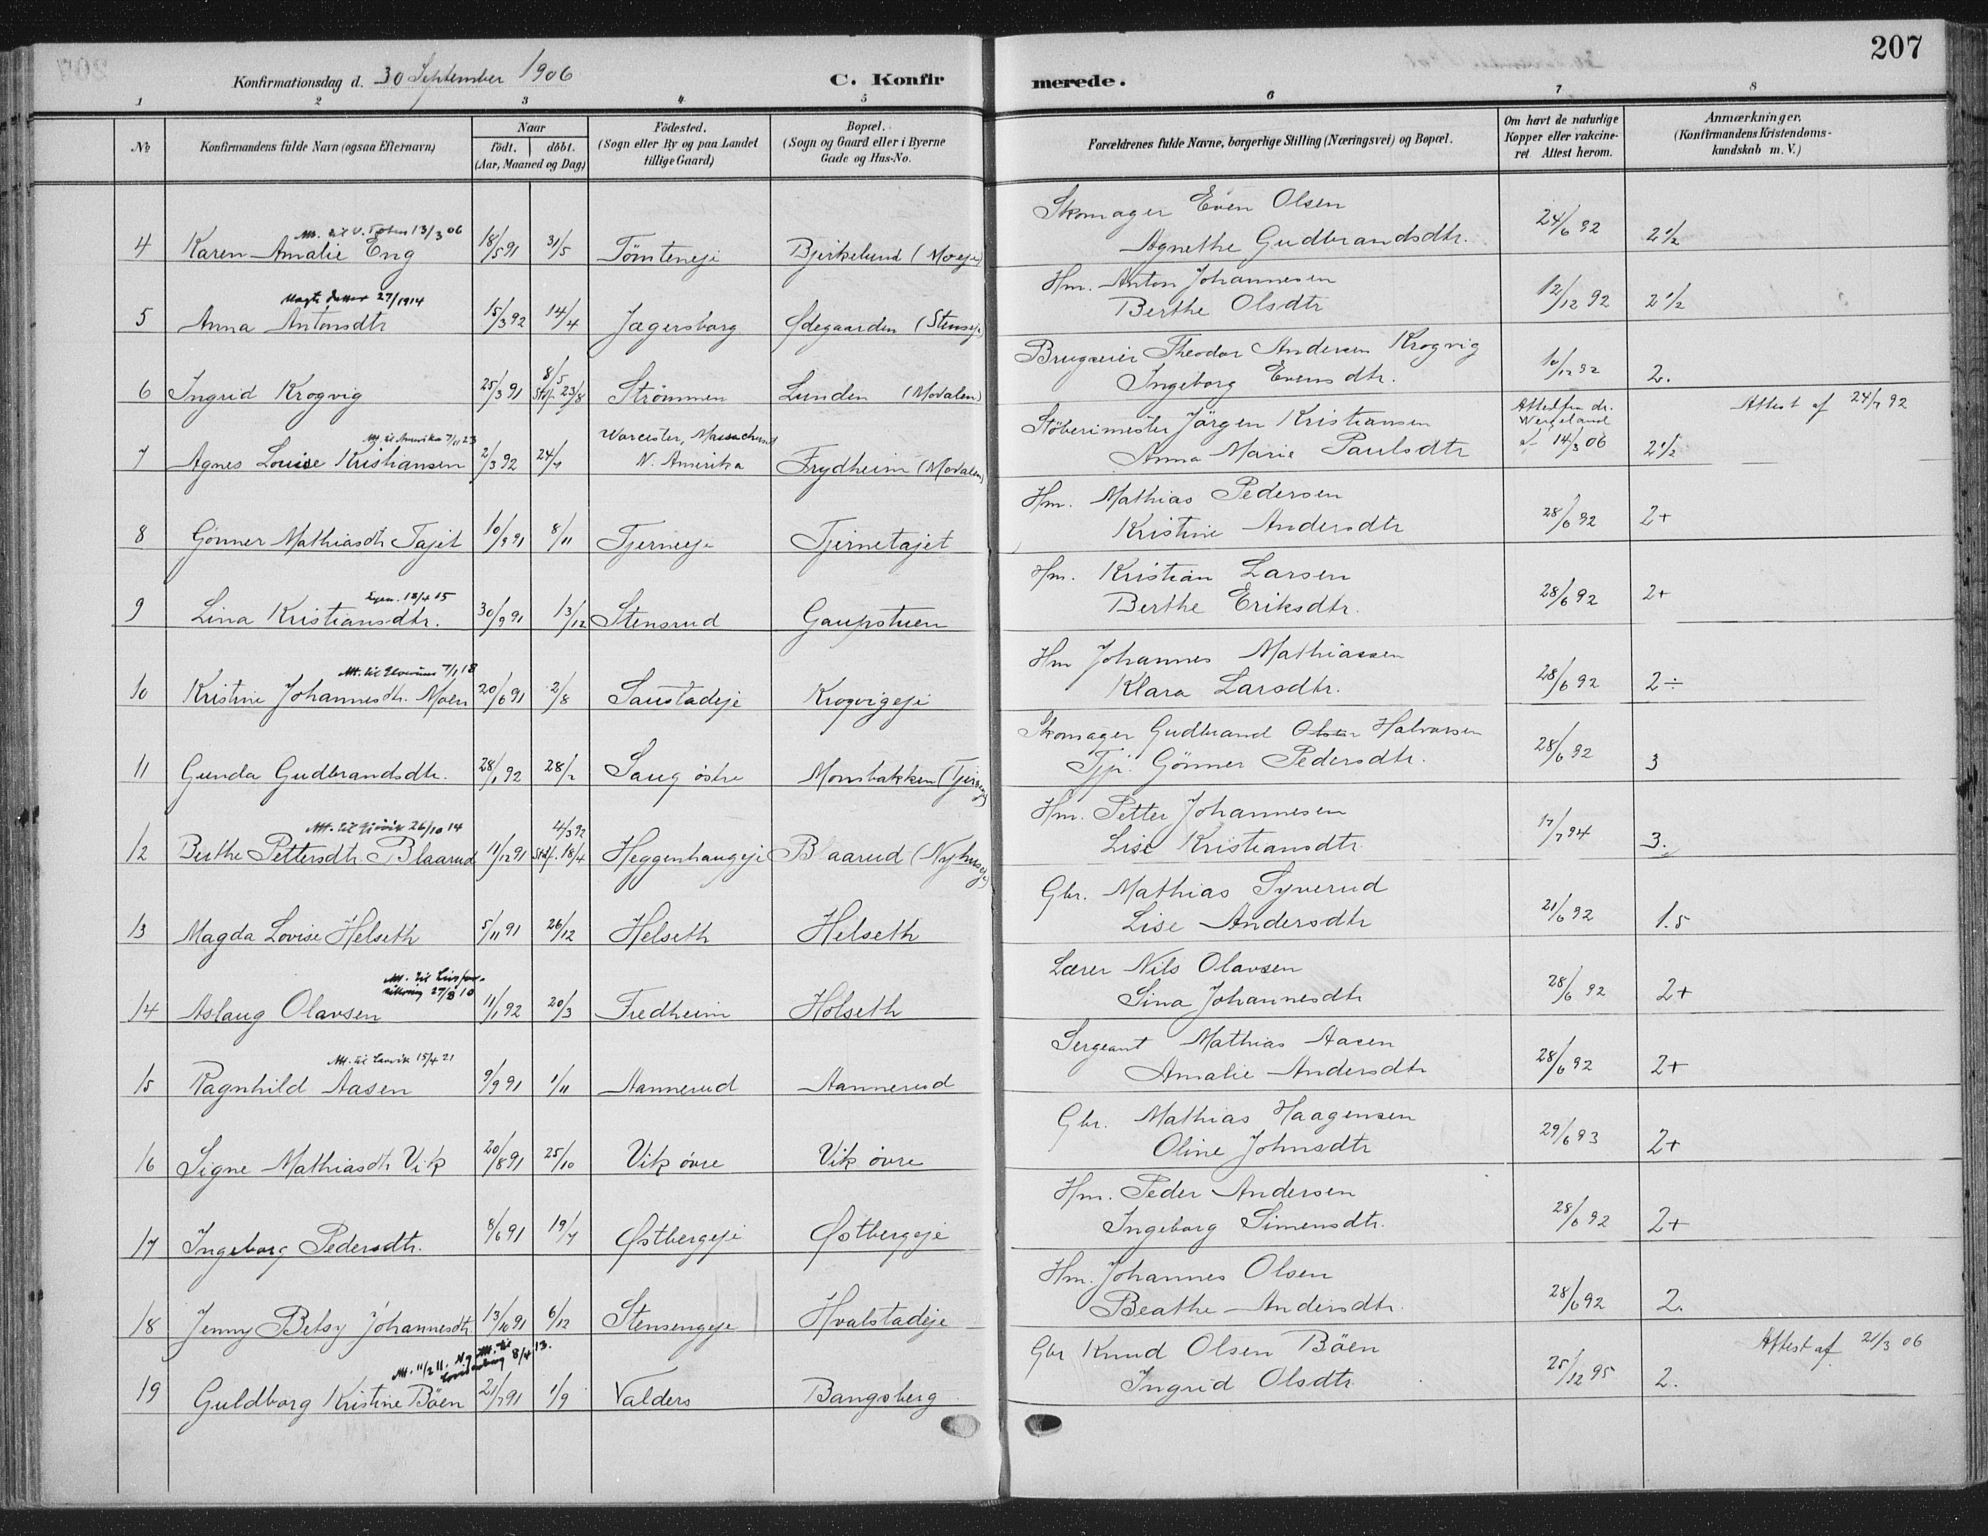 207
Konfirmationsdag d. 30 September 1906
C. Konfirmerede.
1 2 3 4 5 6 7 8
No
Konfirmandens fulde Navn (ogsaa Efternavn)
Naar
födt. döbt.
(Aar, Maaned og Dag)
Födested.
(Sogn eller By og paa Landet
tillige Gaard)
Bopæl.
(Sogn og Gaard eller i Byerne
Gade og Hus-No.
Forældrenes fulde Navne, borgerlige Stilling (Næringsvei) og Bopæl.
Om havt de naturlige
Kopper eller vakcine-
ret Attest herom.
Anmærkninger.
(Konfirmandens Kristendoms-
kundskab m. V.)
Att. til V. Toten 13/3 06
4 Karen Amalie Eng 18/5 91 31/5 Tömteneje Bjerkelund (Moeje) Skomager Even Olsen
Agnethe Gudbrandsdtr. 24/6 92 2 1/2
27/1914
5 Anna Antonsdtr 15/3 92 14/4 Jægersborg Ødegaarden (Stenseje) Hm. Anton Johannesen
Berthe Olsdtr 12/12 92 2 1/2
6 Ingrid Krogvig 25/3 91 8/5 Stdf. 23/8 Strömmen Lunden (Modalen) Brugseier Theodor Andersen Krogvig
Ingeborg Evensdtr. 10/12 92 2.
Att. til Amerika 7/11 23
7 Agnes Louise Kristiansen 2/3 92 24/4 Worcester, Massachuset
N. Amerika Frydheim (Modalen) Støberimester Jörgen Kristiansen
Anna Marie Paulsdtr Attest fra dr.
Wergeland
af 14/3 06 2 1/2 Attest af 24/7 92
8 Gönner Mathiasdtr Tajet 10/9 91 8/11 Tjerneje Tjernetajet Hm. Mathias Pedersen
Kristine Andersdtr 28/6 92 2+
18/4 15
9 Lina Kristiansdtr. 30/9 91 13/12 Stensrud Gaupstuen Hm. Kristian Larsen
Berthe Eriksdtr. 28/6 92 2+
Att. til Elverum 7/1 18
10 Kristine Johannesdtr. Moen 20/6 91 2/8 Saustadeje Krogvigeje Hm Johannes Mathiassen
Klara Larsdtr. 28/6 92 2÷
11 Gunda Gudbrandsdtr. 28/1 92 28/2 Saug östre Monsbakken (Tjerneje) Skomager Gudbrand Olsen Halvorsen
Tjp. Gönner Pedersdtr. 28/6 92 3
Att. til Gjövik 26/10 14
12 Berthe Pettersdtr Blaarud 11/12 91 4/3 92 Stdf. 18/4 Heggenhaugeje Blaarud (Nyhuseje) Hm. Petter Johannesen
Lise Kristiansdtr. 17/7 94 3.
13 Magda Lovise Helseth 5/11 91 26/12 Helseth Helseth Gbr. Mathias Syverud
Lise Andersdtr 21/6 92 1.5
Att. til Livsfor-
sikring 27/8 10
14 Aslaug Olavsen 11/1 92 20/3 Fredheim Holseth Lærer Nils Olavsen
Sina Johannesdtr 28/6 92 2+
Att. til Larvik 15/4 21
15 Ragnhild Aasen 9/9 91 1/11 Aannerud Aannerud Sergeant Mathias Aasen
Amalie Andersdtr 28/6 92 2+
16 Signe Mathiasdtr Vik 20/8 91 25/10 Vik övre Vik övre Gbr. Mathias Haagensen
Oline Johnsdtr 29/6 93 2+
17 Ingeborg Pedersdtr. 8/6 91 19/7 Østbergeje Østbergeje Hm. Peder Andersen
Ingeborg Simensdtr. 28/6 92 2+
18 Jenny Betsy Johannesdtr 13/10 91 6/12 Stensengeje Hvalstadeje Hm. Johannes Olsen
Beathe Andersdtr. 28/6 92 2.
Att. 11/2 11. Ny Att. til 8/4 13.
19 Guldborg Kristine Böen 21/7 91 1/9 Valders Bangsberg Gbr Knud Olsen Böen
Ingrid Olsdtr 25/12 95 2. Attest af 21/3 06